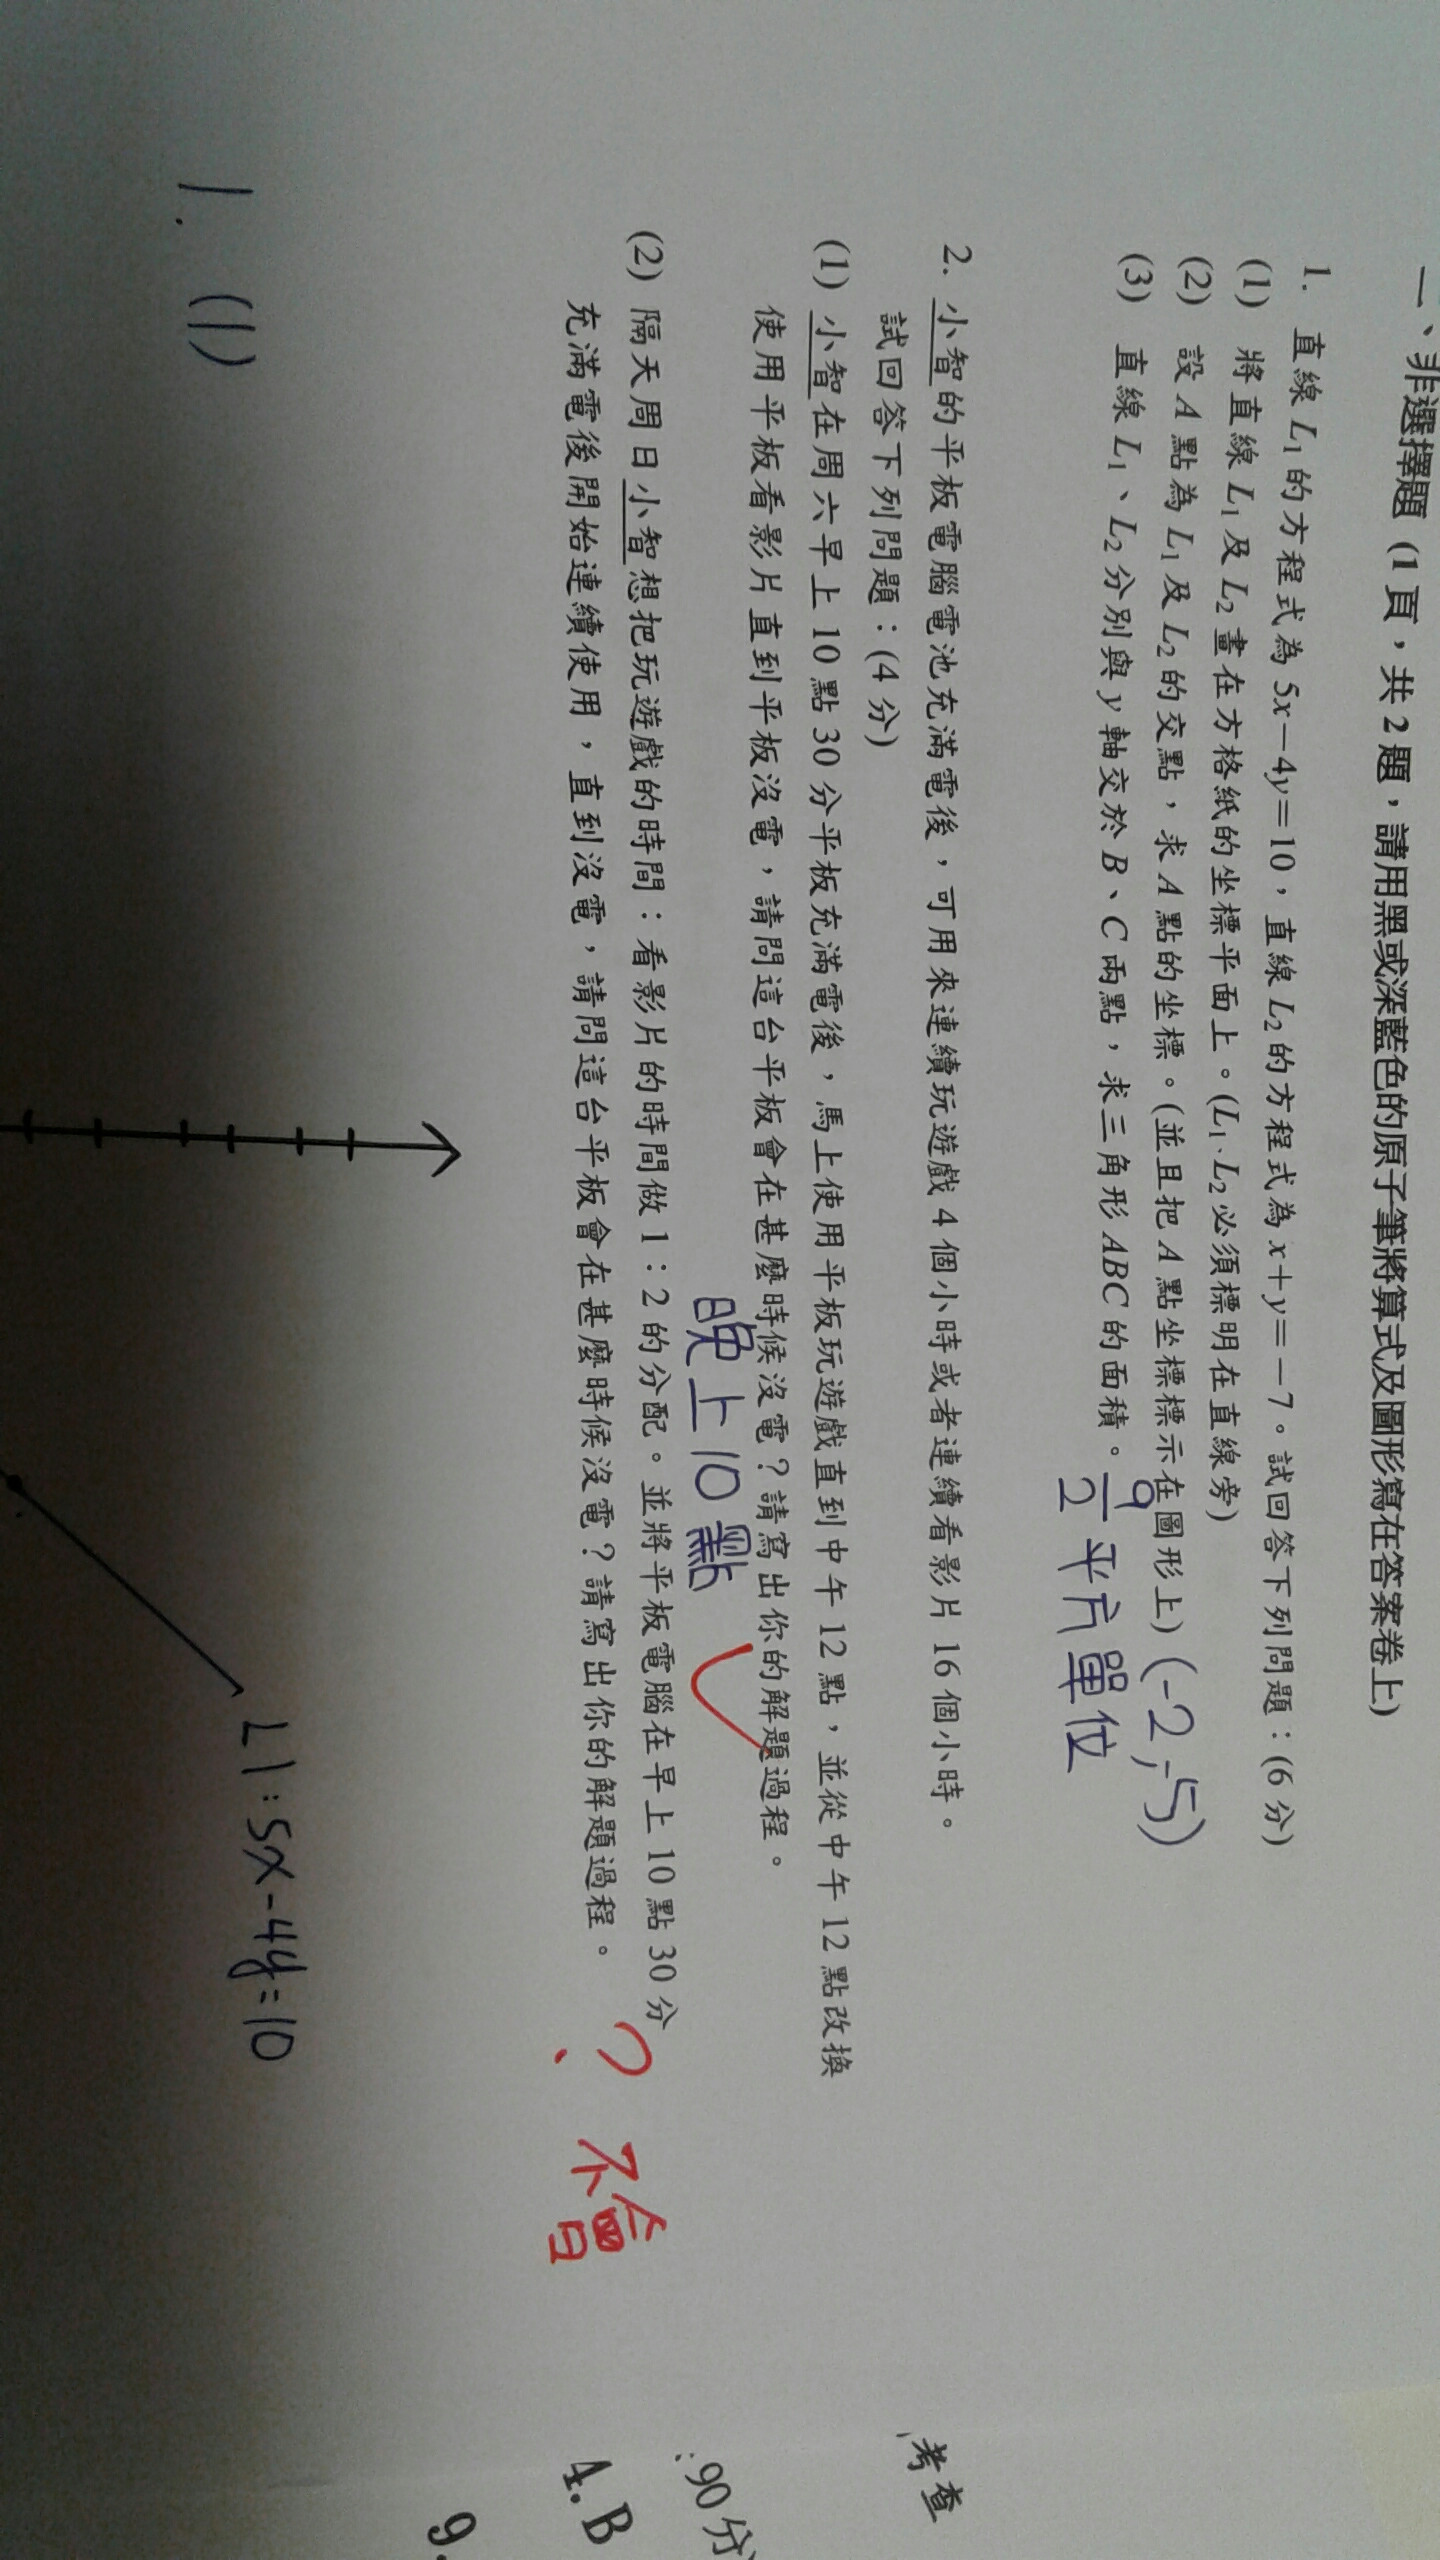 一、非選擇題 (1頁，共2題，請用黑或深藍色的原子筆將算式及圖形寫在答案卷上)
1. 直線 L1 的方程式為 5x－4y＝10，直線 L2 的方程式為 x＋y＝－7。試回答下列問題：(6 分)
(1) 將直線 L1 及 L2 畫在方格紙的坐標平面上。(L1、L2 必須標明在直線旁)
(2) 設 A 點為 L1 及 L2 的交點，求 A 點的坐標。(並且把 A 點坐標標示在圖形上) (-2,-5)
(3) 直線 L1、L2 分別與 y 軸交於 B、C 兩點，求三角形 ABC 的面積。 9/2 平方單位
2. 小智的平板電腦電池充滿電後，可用來連續玩遊戲 4 個小時或者連續看影片 16 個小時。
試回答下列問題：(4 分)
(1) 小智在周六早上 10 點 30 分平板充滿電後，馬上使用平板玩遊戲直到中午 12 點，並從中午 12 點改換
使用平板看影片直到平板沒電，請問這台平板會在甚麼時候沒電？請寫出你的解題過程。
晚上10點
(2) 隔天周日小智想把玩遊戲的時間：看影片的時間做 1：2 的分配。並將平板電腦在早上 10 點 30 分
充滿電後開始連續使用，直到沒電，請問這台平板會在甚麼時候沒電？請寫出你的解題過程。
? 不會
1. (1)
L1:5x-4y=10
考查
:90分
4. B
9.